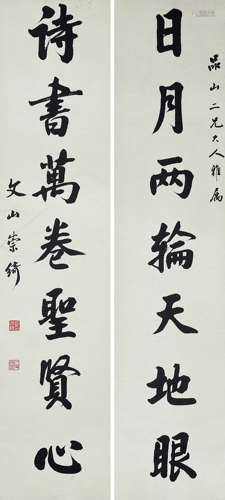 品山二兄大人雅属
日月两輪天地眼
詩書萬卷聖賢心
文山崇綺